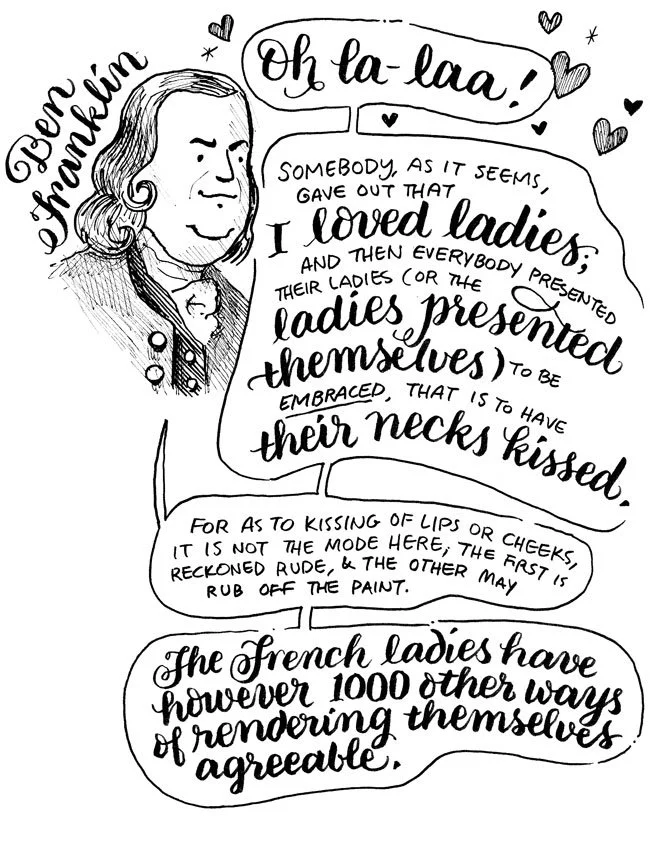 Ben
Franklin
Oh la-laa!
SOMEBODY, AS IT SEEMS,
GAVE OUT THAT
I loved ladies;
AND THEN EVERYBODY PRESENTED
THEIR LADIES (OR THE
ladies presented
themselves) TO BE
EMBRACED, THAT IS TO HAVE
their necks kissed.
FOR AS TO KISSING OF LIPS OR CHEEKS,
IT IS NOT THE MODE HERE; THE FIRST IS
RECKONED RUDE, & THE OTHER MAY
RUB OFF THE PAINT.
The French ladies have
however 1000 other ways
of rendering themselves
agreeable.